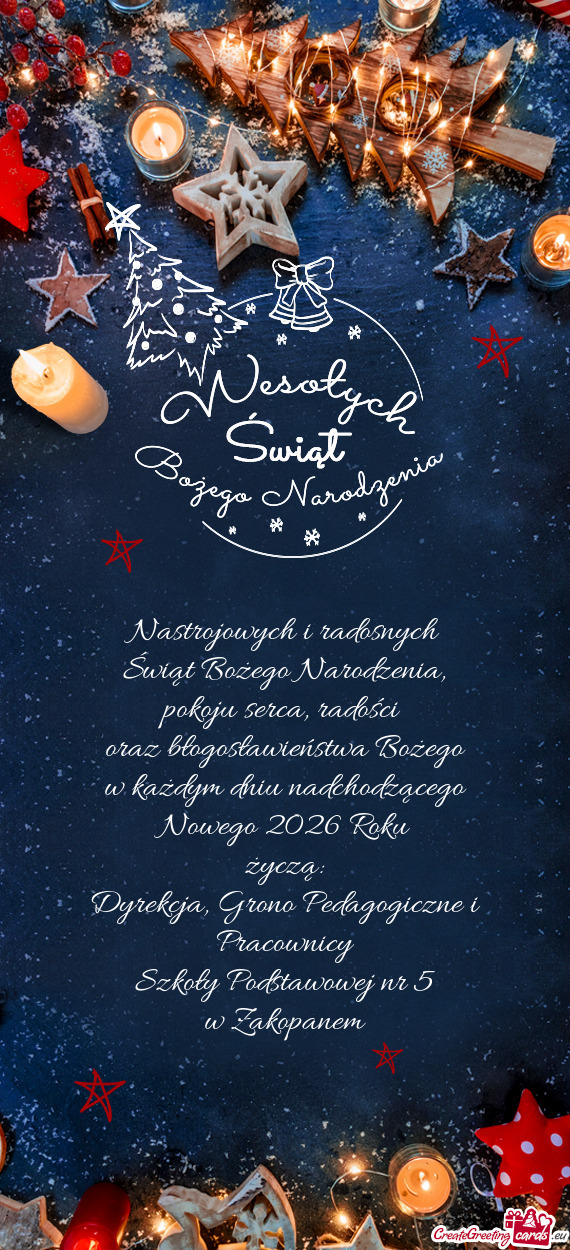 Wesołych
Świąt
Bożego Narodzenia
Nastrojowych i radosnych
Świąt Bożego Narodzenia,
pokoju serca, radości
oraz błogosławieństwa Bożego
w każdym dniu nadchodzącego
Nowego 2026 Roku
życzą:
Dyrekcja, Grono Pedagogiczne i
Pracownicy
Szkoły Podstawowej nr 5
w Zakopanem
CreateGreetingcards.eu